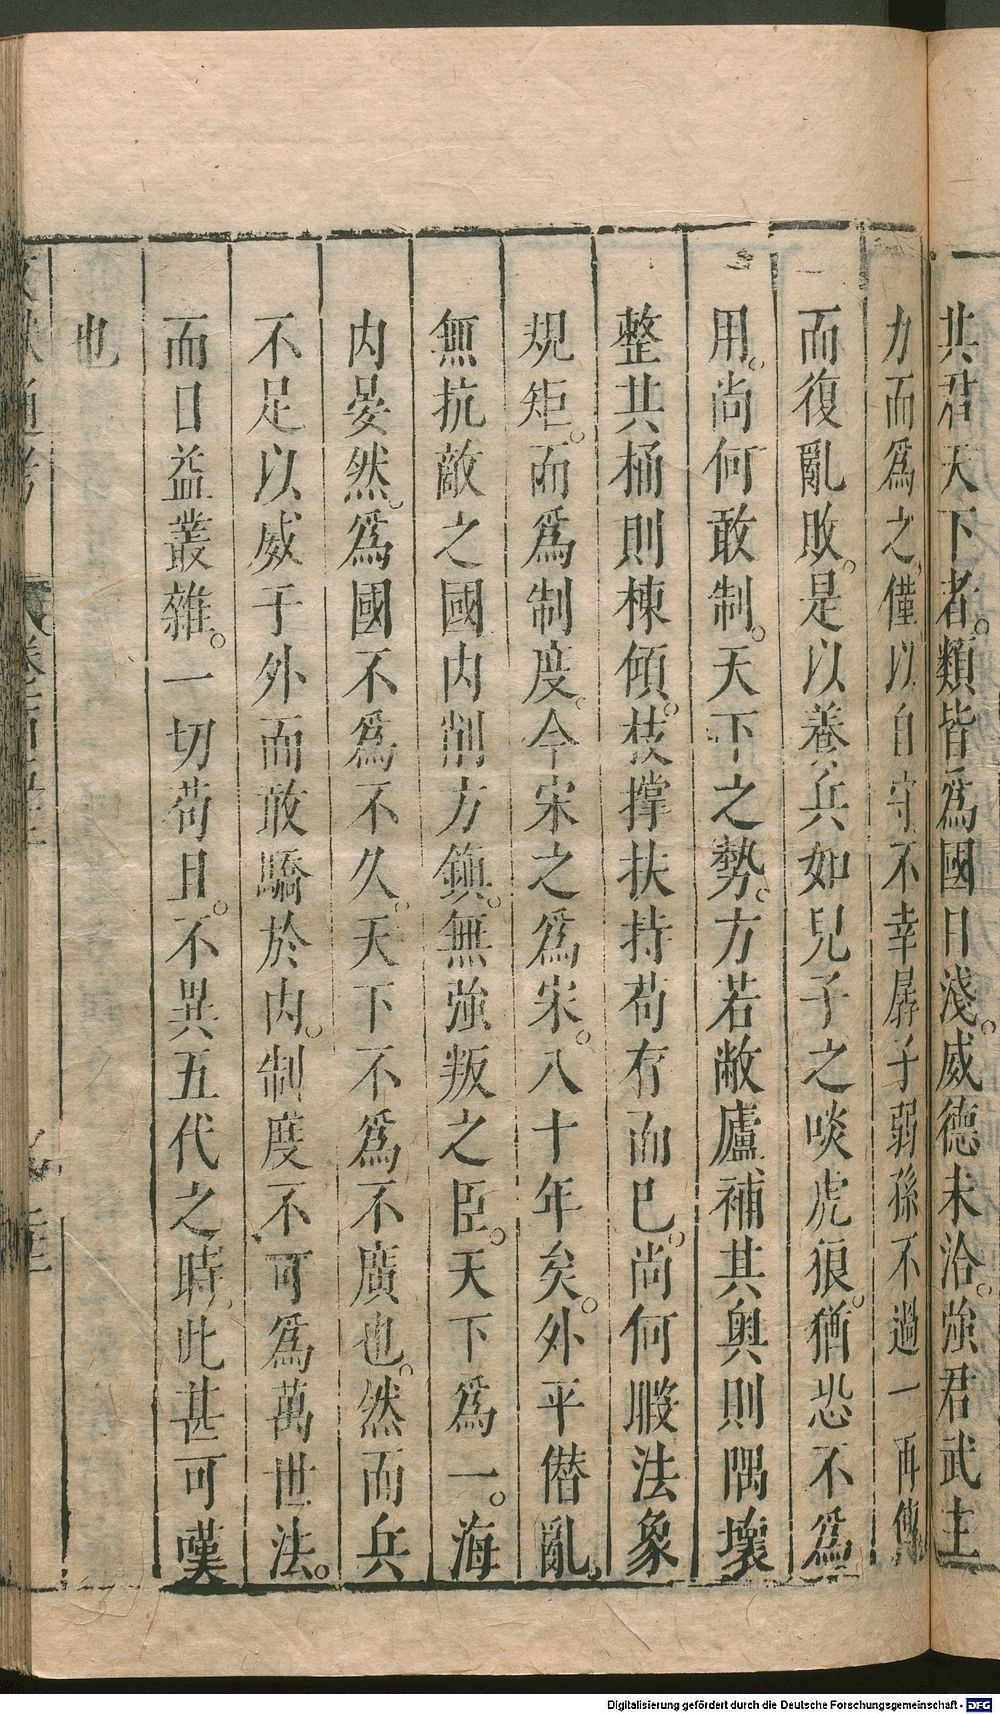 共君天下者。類皆爲國日淺。威德未洽。強君武主
力而爲之僅以自守不幸孱子弱孫不過一再傳
而復亂敗。是以養兵如兒子之啖虎狼。猶恐不爲
用。尚何敢制。天下之勢。方若敝廬補其奥則隅壞
整共桷則棟傾。枝撐扶持苟存而已。尚何暇法象
規矩。而爲制度。今宋之爲宋。八十年矣。外平僣亂。
無抗敵之國内削方鎮。無強叛之臣。天下爲一。海
内晏然。爲國不爲不久。天下不爲不廣也。然而兵
不足以威于外而敢驕於内。制度不可爲萬世法。
而日益叢雜。一切苟且。不異五代之時。此甚可嘆
也
通考 卷
Digitalisierung gefördert durch die Deutsche Forschungsgemeinschaft - DFG